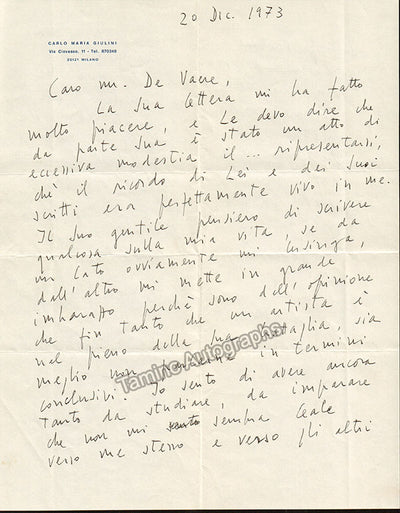 20 Dic. 1973
CARLO MARIA GIULINI
Via Ciovasso, 11 - Tel. 870348
20121 MILANO
Caro mr. De Vacre,
La Sua lettera mi ha fatto
molto piacere, e Le devo dire che
da parte Sua è stato un atto di
eccessiva modestia il ... ripresentarsi,
chè il ricordo di Lei e dei Suoi
scritti era perfettamente vivo in me.
Il Suo gentile pensiero di scrivere
qualcosa sulla mia vita, se da
un lato ovviamente mi lusinga,
dall'altro mi mette in grande
imbarazzo perchè sono dell'opinione
che fin tanto che un artista è
nel pieno della sua battaglia, sia
meglio non in termini
conclusivi. Io sento di avere ancora
tanto da studiare, da imparare
che non mi sento sembra leale
verso me stesso e verso gli altri
Tamino Autographs